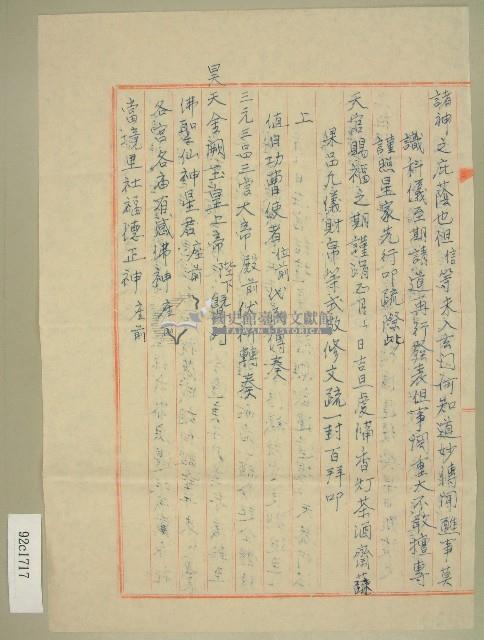 諸神之庇蔭也但信等未入玄門何知道妙轉聞醮事莫
識科儀至期請道再行發表但事関重大不敢擅專
謹照星家先行叩疏際此
天官賜福之期謹涓正月 日吉旦虔備香灯茶酒齋蔬
菓品凡儀財帛等式敬修文疏一封百拜叩
上
值日功曹使者 位前代為傳奏
三元三品三官大帝 殿前伏祈轉奏
昊天金闕玉皇上帝 陛下
佛聖仙神星君 座前
各宮各庙有感佛神
當境里社福德正神 座前
國史館臺灣文獻館
TAIWAN HISTORICA
92c1717